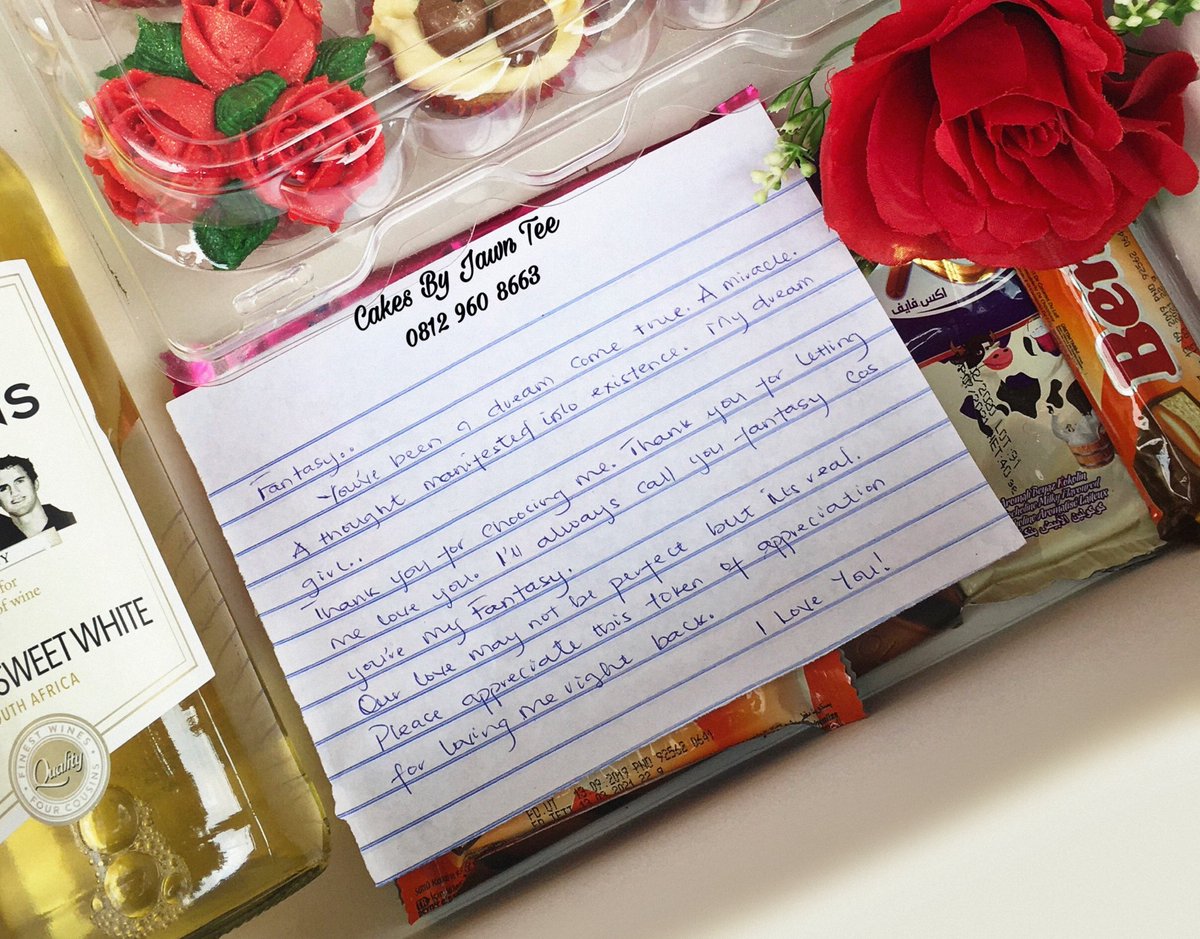 Cakes By Jawn Tee
0812 960 8663
Fantasy..
You've been a dream come true. A miracle.
A thought manifested into existence. My dream
girl..
Thank you for choosing me. Thank you for letting
me love you. I'll always call you fantasy cos
you're my Fantasy.
Our love may not be perfect but it's real.
Please appreciate this token of appreciation
for loving me right back.
I Love You!
NS
Y
for
of wine
SWEET WHITE
OUTH AFRICA
FINEST WINES
Quality
FOUR COUSINS
اكس فايف
Ber
Aromalı Beyaz Kokolin
Milky Flavoured
13.09.2019 PND 92562 0641